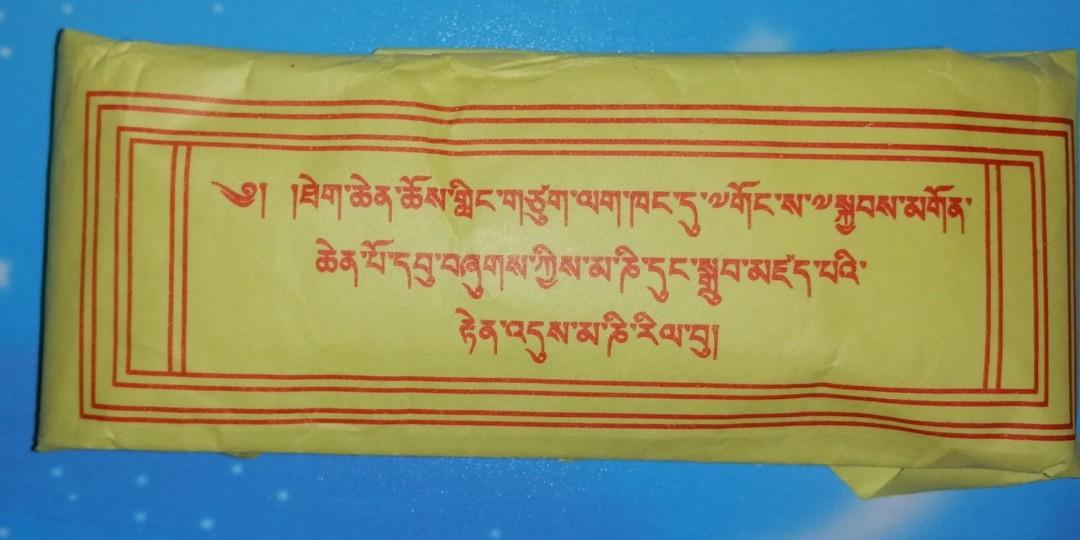 ༄། །ཐེག་ཆེན་ཆོས་གླིང་གཙུག་ལག་ཁང་དུ་༧གོང་ས་༧སྐྱབས་མགོན་
ཆེན་པོ་དབུ་བཞུགས་ཀྱིས་མ་ཎི་དུང་སྒྲུབ་མཛད་པའི་
རྟེན་འདུས་མ་ཎི་རིལ་བུ།